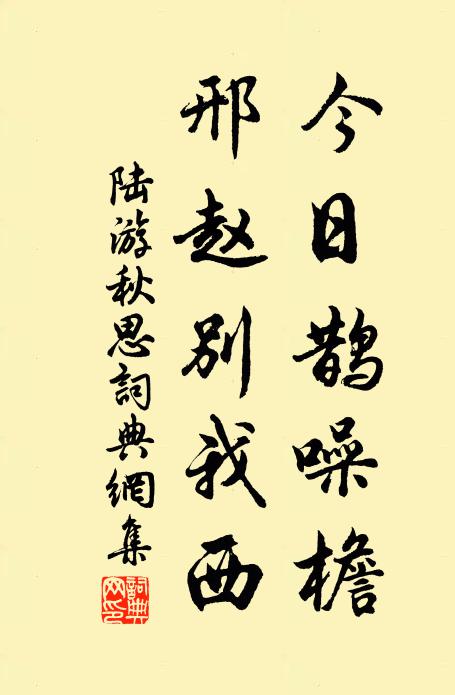 今日鹊噪檐
邢赵别我西
陆游秋思詞典網集
詞典网印